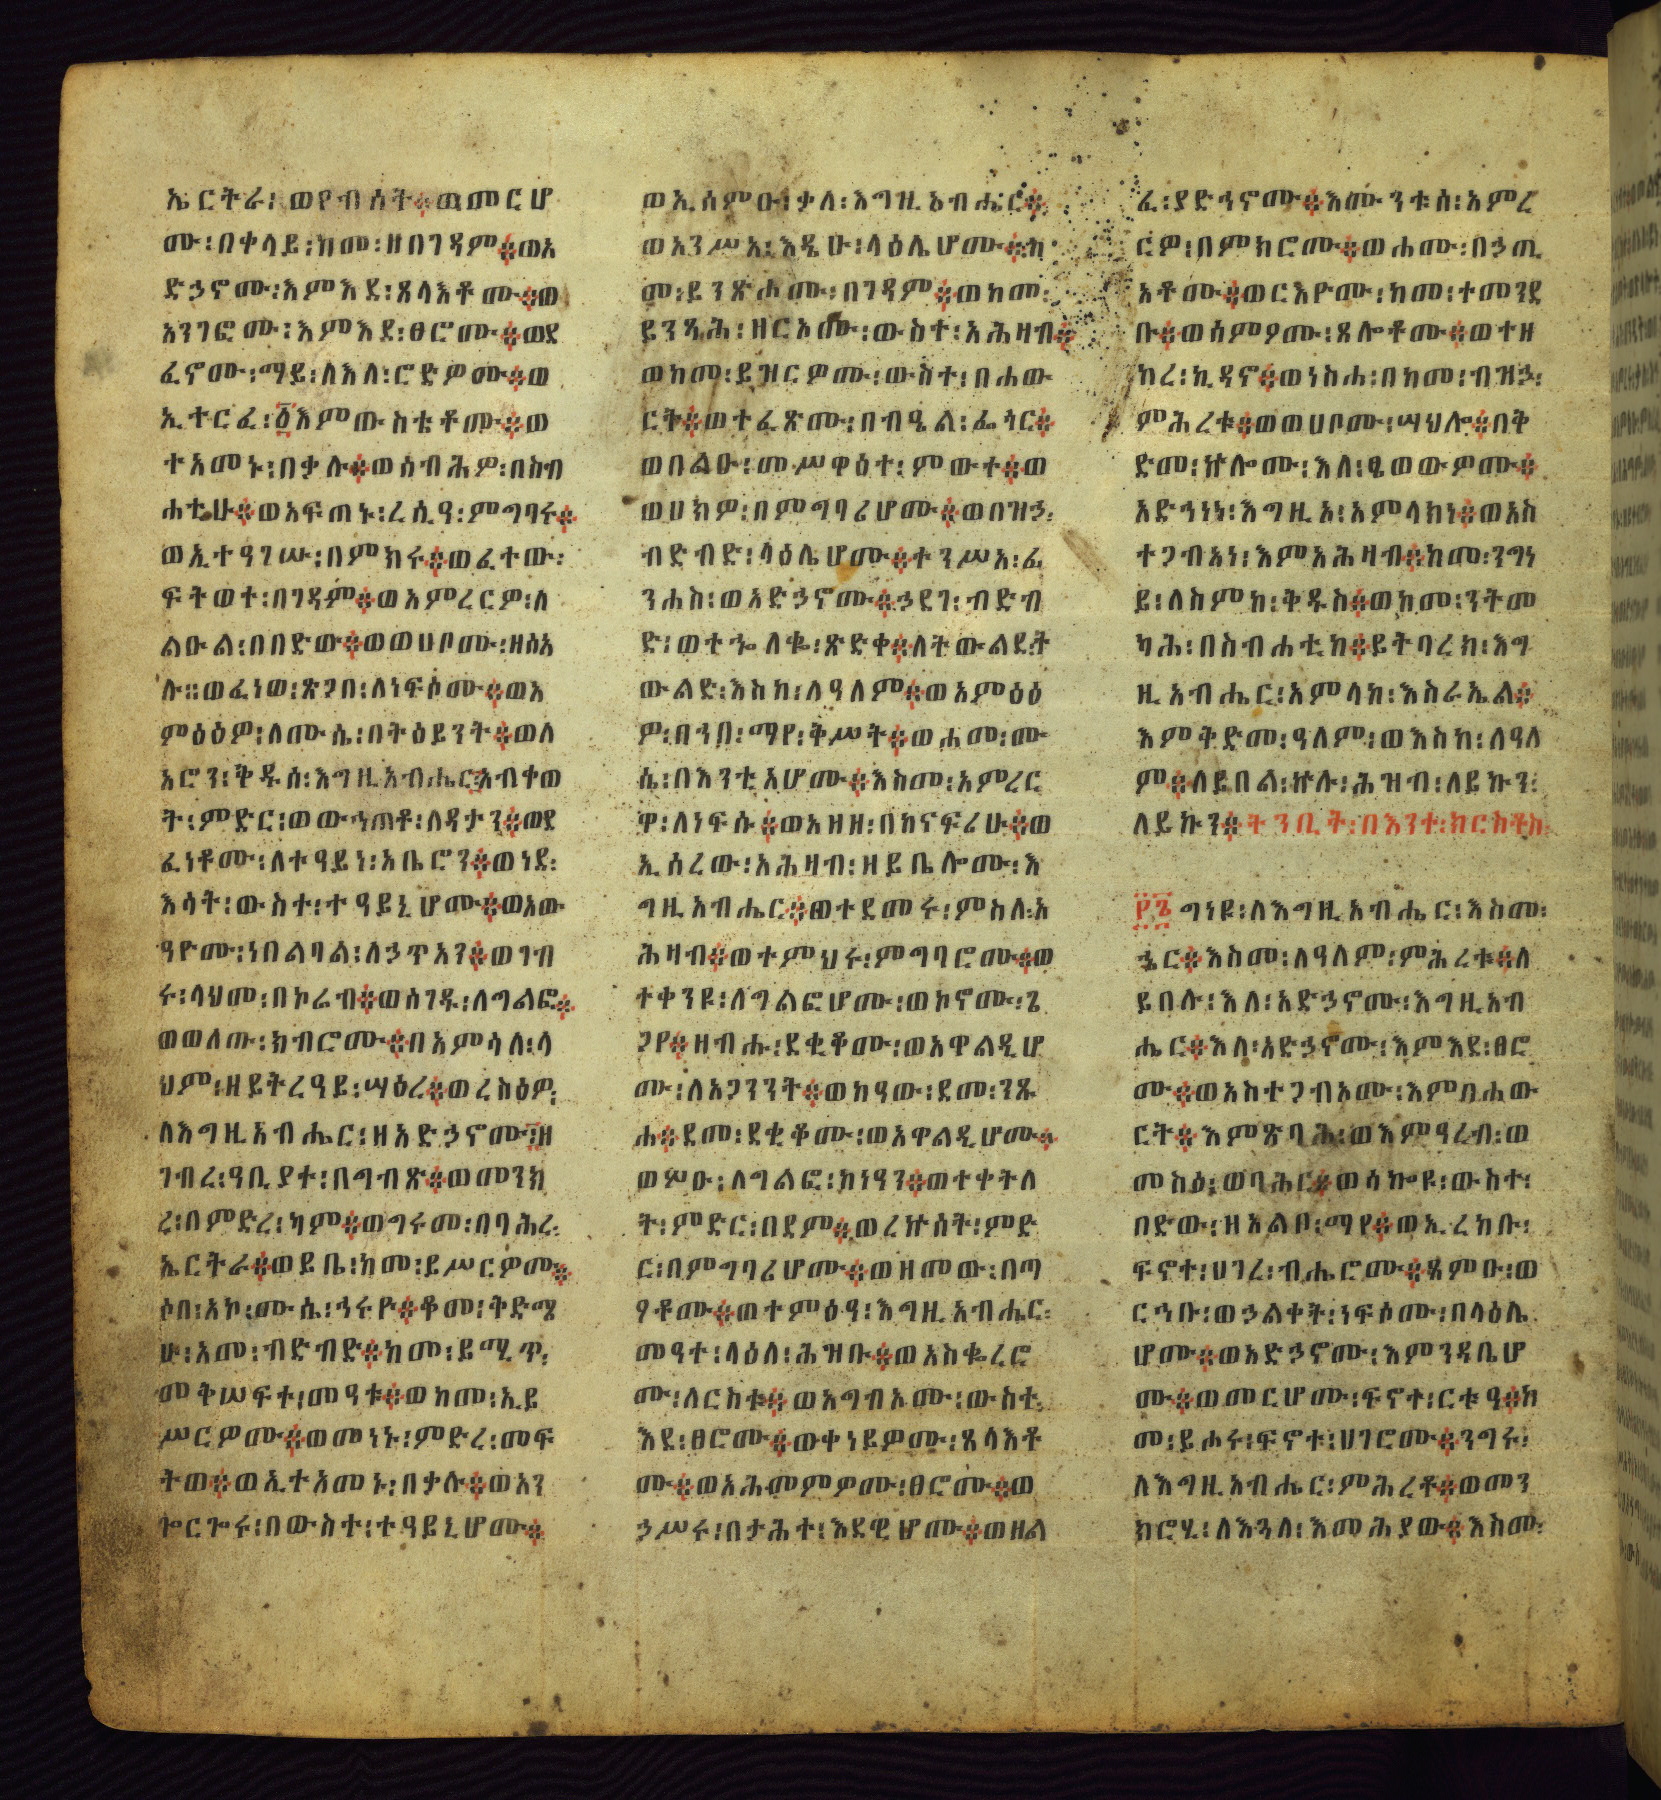 ኤርትራ፡ወየብሰት፨ወመርሆ
ሙ፡በቀላይ፡ከመ፡ዘበገዳም፨ወአ
ድኃኖሙ፡እምእደ፡ጸላእቶሙ፨ወ
አንገፎሙ፡እምእደ፡ፀሮሙ፨ወደ
ፈኖሙ፡ማይ፡ለእለ፡ሮድዎሙ፨ወ
ኢተርፈ፡፩እምውስቴቶሙ፨ወ
ተአመኑ፡በቃሉ፨ወሰብሕዎ፡በስብ
ሐቲሁ፨ወአፍጠኑ፡ረሲዓ፡ምግባሩ፨
ወኢተዓገሡ፡በምክሩ፨ወፈተው፡
ፍትወተ፡በገዳም፨ወአምረርዎ፡ለ
ልዑል፡በበድው፨ወወሀቦሙ፡ዘሰአ
ሉ።ወፈነወ፡ጽጋበ፡ለነፍሶሙ፨ወአ
ምዕዕዎ፡ለሙሴ፡በትዕይንት፨ወለ
አሮን፡ቅዱሰ፡እግዚአብሔር፨አብቀወ
ት፡ምድር፡ወውኅጠቶ፡ለዳታን፨ወደ
ፈነቶሙ፡ለተዓይነ፡አቤሮን፨ወነደ፡
እሳት፡ውስተ፡ተዓይኒሆሙ፨ወአው
ዓዮሙ፡ነበልባል፡ለኃጥአን፨ወገብ
ሩ፡ላህመ፡በኮሬብ፨ወሰገዱ፡ለግልፎ፨
ወወለጡ፡ክብሮሙ፨በአምሳለ፡ላ
ህም፡ዘይትረዓይ፡ሣዕረ፨ወረስዕዎ፡
ለእግዚአብሔር፡ዘአድኃኖሙ፨ዘ
ገብረ፡ዓቢያተ፡በግብጽ፨ወመንክ
ረ፡በምድረ፡ካም፨ወግሩመ፡በባሕረ፡
ኤርትራ፨ወይቤ፡ከመ፡ይሥርዎሙ፨
ሶበ፡አኮ፡ሙሴ፡ኅሩዮ፨ቆመ፡ቅድሜ
ሁ፡አመ፡ብድብድ፨ከመ፡ይሚጥ፡
መቅሠፍተ፡መዓቱ፨ወከመ፡ኢይ
ሥርዎሙ፨ወመነኑ፡ምድረ፡መፍ
ትወ፨ወኢተአመኑ፡በቃሉ፨ወአን
ጐርጐሩ፡በውስተ፡ተዓይኒሆሙ፨
ወኢሰምዑ፡ቃለ፡እግዚአብሔር፨
ወአንሥአ፡እዴሁ፡ላዕሌሆሙ፨ከ
መ፡ይንጽሖሙ፡በገዳም፨ወከመ፡
ይንጻሕ፡ዘርአሙ፡ውስተ፡አሕዛብ፨
ወከመ፡ይዝርዎሙ፡ውስተ፡በሐው
ርት፨ወተፈጽሙ፡በብዔል፡ፌጎር፨
ወበልዑ፡መሥዋዕተ፡ምውተ፨ወ
ወሀክዎ፡በምግባሪሆሙ፨ወበዝኃ፡
ብድብድ፡ላዕሌሆሙ፨ተንሥአ፡ፊ
ንሐስ፡ወአድኃኖሙ፨ኃደገ፡ብድብ
ድ፡ወተኈለቈ፡ጽድቀ፨ለትውልደ፡ት
ውልድ፡እስከ፡ለዓለም፨ወአምዕዕ
ዎ፡በኀበ፡ማየ፡ቅሥት፨ወሐመ፡ሙ
ሴ፡በእንቲአሆሙ፨እስመ፡አምረር
ዋ፡ለነፍሱ፨ወአዘዘ፡በከናፍሪሁ፨ወ
ኢሰረው፡አሕዛብ፡ዘይቤሎሙ፡እ
ግዚአብሔር፨ወተደመሩ፡ምስለ፡አ
ሕዛብ፨ወተምህሩ፡ምግባሮሙ፨ወ
ተቀንዩ፡ለግልፎሆሙ፡ወኮኖሙ፡ጌ
ጋየ፨ዘብሑ፡ደቂቆሙ፡ወአዋልዲሆ
ሙ፡ለአጋንንት፨ወከዓው፡ደመ፡ንጹ
ሐ፨ደመ፡ደቂቆሙ፡ወአዋልዲሆሙ፨
ወሦዑ፡ለግልፎ፡ከነዓን፨ወተቀትለ
ት፡ምድር፡በደም፨ወረኵሰት፡ምድ
ር፡በምግባሪሆሙ፨ወዘመው፡በጣ
ዖቶሙ፨ወተምዕዓ፡እግዚአብሔር፡
መዓተ፡ላዕለ፡ሕዝቡ፨ወአስቈረሮ
ሙ፡ለርስቱ፨ወአግብኦሙ፡ውስተ፡
እደ፡ፀሮሙ፨ወቀነይዎሙ፡ጸላእቶ
ሙ፨ወአሕመምዎሙ፡ፀሮሙ፨ወ
ኃሥሩ፡በታሕተ፡እደዊሆሙ፨ወዘል
ፈ፡ያድኅኖሙ፨እሙንቱሰ፡አምረ
ርዎ፡በምክሮሙ፨ወሐሙ፡በኃጢ
አቶሙ፨ወርእዮሙ፡ከመ፡ተመንደ
ቡ፨ወሰምዖሙ፡ጸሎቶሙ፨ወተዘ
ከረ፡ኪዳኖ፨ወነስሐ፡በከመ፡ብዝኃ፡
ምሕረቱ፨ወወሀቦሙ፡ሣህሎ፨በቅ
ድመ፡ኵሎሙ፡እለ፡ፄወውዎሙ፨
አድኅነነ፡እግዚአ፡አምላክነ፨ወአስ
ተጋብአነ፡እምአሕዛብ፨ከመ፡ንግነ
ይ፡ለስምከ፡ቅዱስ፨ወከመ፡ንትመ
ካሕ፡በስብሐቲከ፨ይትባረክ፡እግ
ዚአብሔር፡አምላከ፡እስራኤል፨
እምቅድመ፡ዓለም፡ወእስከ፡ለዓለ
ም፨ለይበል፡ኵሉ፡ሕዝብ፡ለይኩን፡
ለይኩን፨ትንቢት፡በእንተ፡ክርስቶስ
፻፮ግነዩ፡ለእግዚአብሔር፡እስመ፡
ኄር፨እስመ፡ለዓለም፡ምሕረቱ፨ለ
ይበሉ፡እለ፡አድኃኖሙ፡እግዚአብ
ሔር፨እለ፡አድኃኖሙ፡እምእደ፡ፀሮ
ሙ፨ወአስተጋብአሙ፡እምበሐው
ርት፨እምጽባሕ፡ወእምዓረብ፡ወ
መስዕ፡ወባሕር፨ወሳኰዩ፡ውስተ፡
በድው፡ዘአልቦ፡ማየ፨ወኢረከቡ፡
ፍኖተ፡ሀገረ፡ብሔሮሙ፨ጼምዑ፡ወ
ርኅቡ፡ወኃልቀት፡ነፍሶሙ፡በላዕሌ
ሆሙ፨ወአድኃኖሙ፡እምንዳቤሆ
ሙ፨ወመርሆሙ፡ፍኖተ፡ርቱዓ፨ከ
መ፡ይሖሩ፡ፍኖተ፡ሀገሮሙ፨ንግሩ፡
ለእግዚአብሔር፡ምሕረቶ፨ወመን
ክሮሂ፡ለእጓለ፡እመሕያው፨እስመ፡